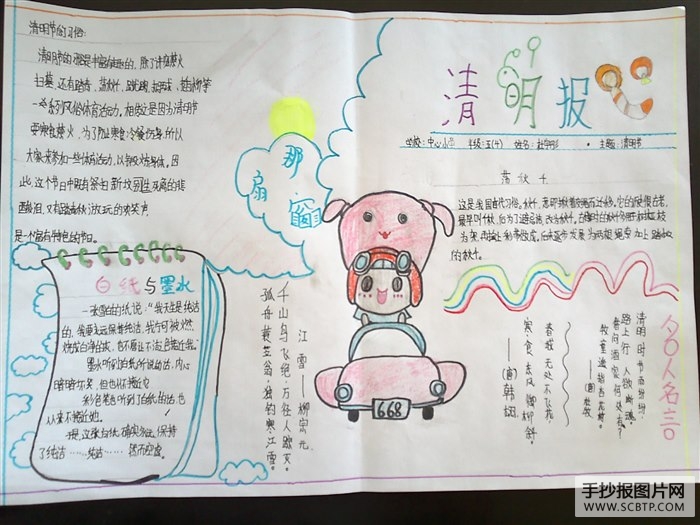 清明节的习俗:
清明节的习俗是丰富有趣的,除了讲究禁火
扫墓,还有踏青、荡秋千、蹴鞠、打马球、插柳等
一系列风俗体育活动。相传这是因为清明节
要寒食禁火,为了防止寒食冷餐伤身,所以
大家来参加一些体育活动,以锻炼身体。因
此,这个节日中既有祭扫新坟生死离别的悲
酸泪,又有踏青游玩的欢笑声,
是一个富有特色的节日。
清明报
学校:中心小学 年级:五(4) 姓名: 主题:清明节
荡秋千
这是我国古代习俗。秋千,意即揪着皮绳而迁移。它的历史很古老,
最早叫千秋,后为了避忌讳,改为秋千。
那扇窗
白纸与墨水
一张雪白的纸说:“我天生是纯洁
的,我要永远保持纯洁,我宁可被火燃
烧成白的灰,也不愿让不洁白接近我。”
墨水听到白纸所说的话,内心
暗暗好笑,但也不接近它
彩色笔也听到了白纸的话,也
从来不接近他。
于是,这张白纸确实永保持
了纯洁……纯洁……然而空虚。
江雪——柳宗元
千山鸟飞绝,万径人踪灭。
孤舟蓑笠翁,独钓寒江雪。
668
春城无处不飞花
寒食东风御柳斜。
——(唐)韩翃
名人名言
清明时节雨纷纷,
路上行人欲断魂。
借问酒家何处有?
牧童遥指杏花村。
——(唐)杜牧
手抄报图片网
WWW.SCBTP.COM